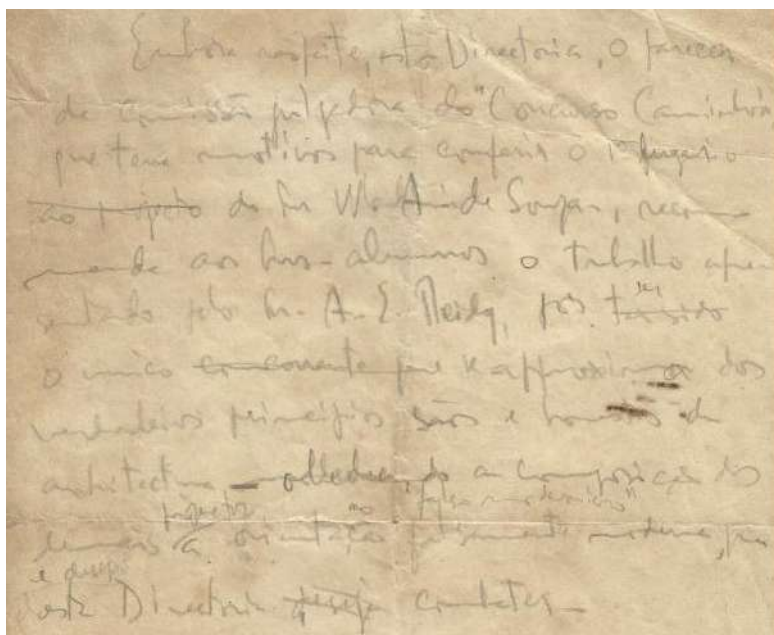 Embora respeite, esta Directoria, o parecer
da comissão julgadora do "Concurso Caminhoá
que teve motivos para conferir o 1º lugar o
ao projeto do Snr W. de Souza, recom
menda aos snrs. alumnos o trabalho apre
sentado pelo Sr. A. E. Reidy, por ter sido
o unico concorrente que se approximou dos
verdadeiros principios sãos e honestos da
architectura — obedecendo a composição dos
projectos "falso modernismo"
demais a orientação falsamente moderna, que
é desejo
esta Directoria deseja combater —